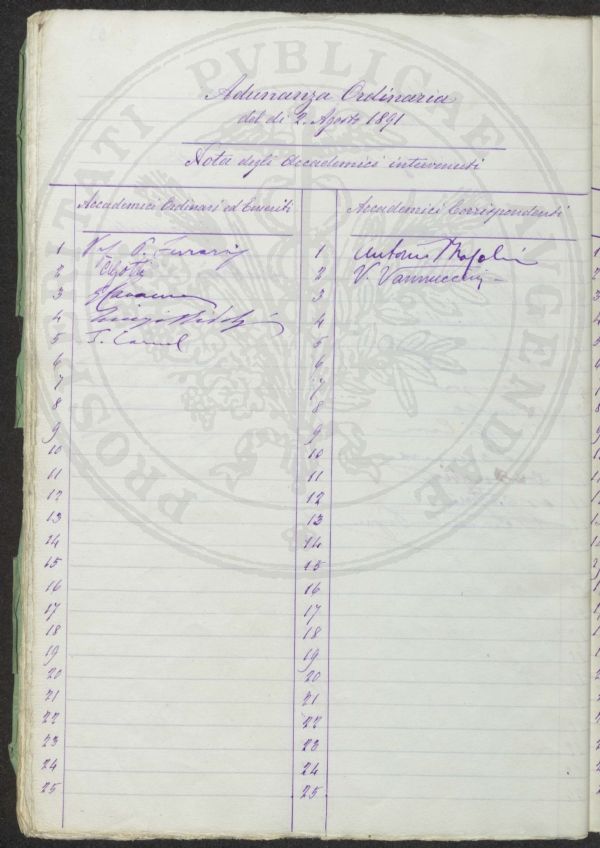 Adunanza Ordinaria
del dì 2. Agosto 1891
Nota degli Accademici intervenuti
Accademici Ordinari ed Emeriti
Accademici Corrispondenti
1
2
3
4 Luigi
5
6
7
8
9
10
11
12
13
14
15
16
17
18
19
20
21
22
23
24
25
1 Antonio
2 V. Vannuccini
3
4
5
6
7
8
9
10
11
12
13
14
15
16
17
18
19
20
21
22
23
24
25
PROSPERITATI PVBLICAE AVGENDAE